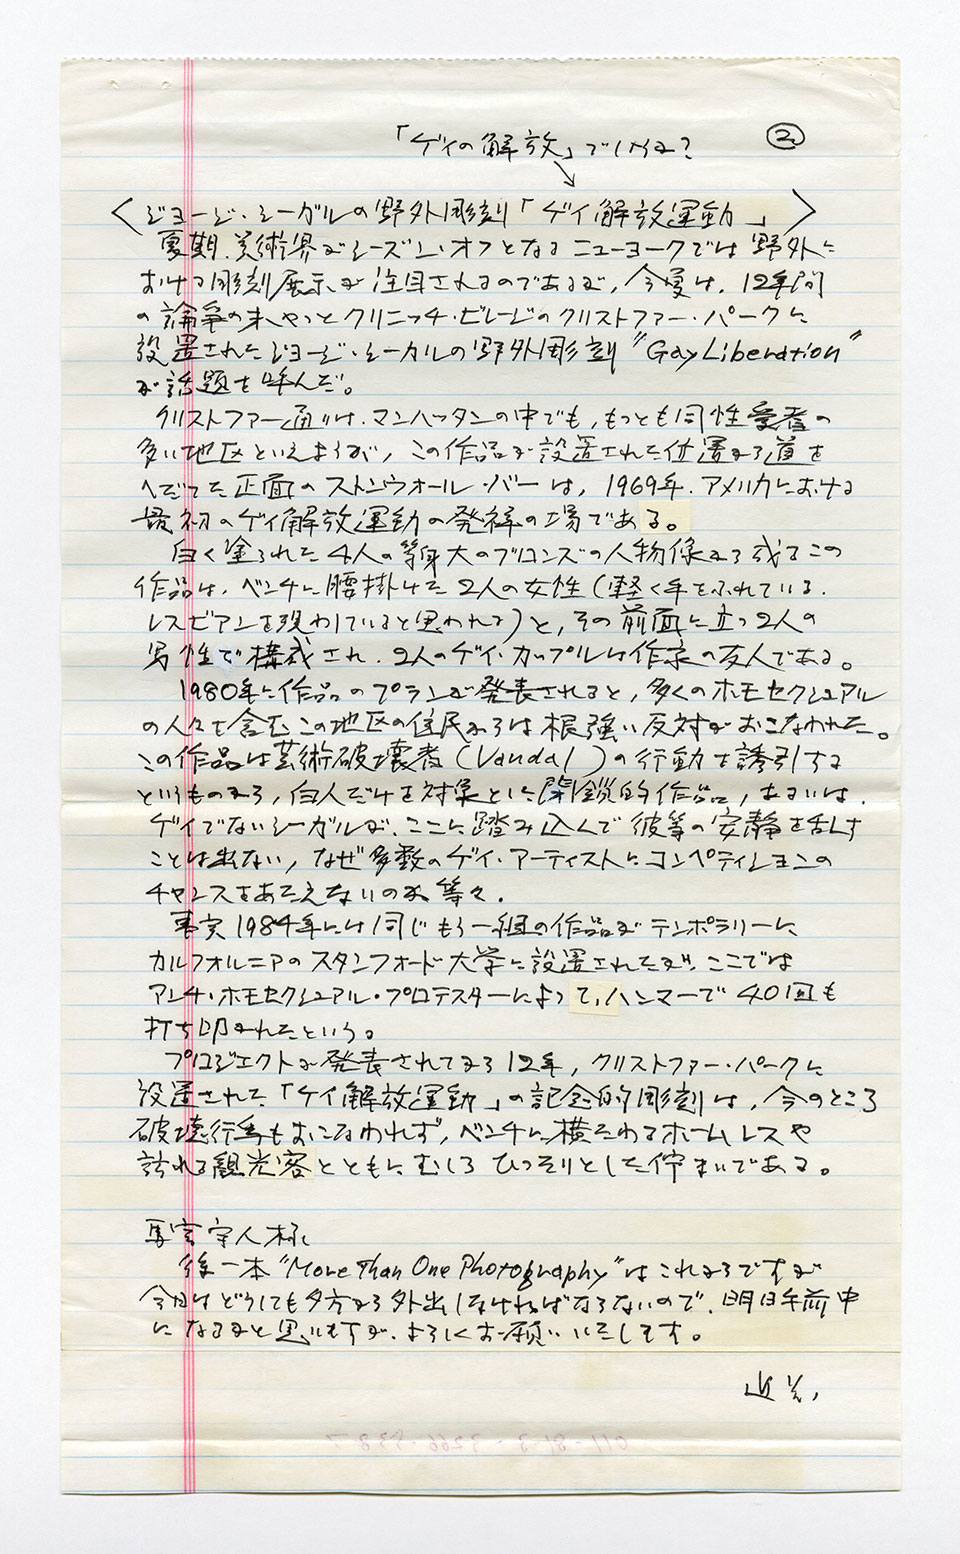 ②
「ゲイの解放」でしょうか?
〈ジョージ・シーガルの野外彫刻「ゲイ解放運動」〉
夏期、美術界がシーズン・オフとなるニューヨークでは野外に
おける彫刻展示が注目されるのであるが、今夏は、12年間
の論争の末やっとクリニッチ・ビレージのクリストファー・パークに
設置されたジョージ・シーガルの野外彫刻 "Gay Liberation"
が話題を呼んだ。
クリストファー通りは、マンハッタンの中でも、もっとも同性愛者の
多い地区といえようが、この作品が設置された位置から道を
へだてた正面のストンウォール・バーは、1969年、アメリカにおける
最初のゲイ解放運動の発祥の場である。
白く塗られた4人の等身大のブロンズの人物像から成るこの
作品は、ベンチに腰掛けた2人の女性(軽く手をふれている、
レスビアンを現わしていると思われる)と、その前面に立つ2人の
男性で構成され、2人のゲイ・カップルは作家の友人である。
1980年に作品のプランが発表されると、多くのホモセクシュアル
の人々を含むこの地区の住民からは根強い反対がおこなわれた。
この作品は芸術破壊者(Vandal)の行動を誘引する
というものから、白人だけを対象とした閉鎖的作品、あるいは、
ゲイでないシーガルが、ここに踏み込んで彼等の安静を乱す
ことは出ない、なぜ多数のゲイ・アーティストにコンペティションの
チャンスをあたえないのか等々。
事実1984年には同じもう一組の作品がテンポラリーに
カルフォルニアのスタンフォード大学に設置されたが、ここでは
アンチ・ホモセクシュアル・プロテスターによって、ハンマーで40回も
打ち叩かれたという。
プロジェクトが発表されてから12年、クリストファー・パークに
設置された「ゲイ解放運動」の記念的彫刻は、今のところ
破壊行為もおこなわれず、ベンチに横たわるホームレスや
訪れる観光客とともにむしろひっそりとした佇まいである。
宇人様
後一本 "More Than One Photography" はこれからですが
今日はどうしても夕方から外出しなければならないので、明日午前中
になるかと思いますが、よろしくお願いいたします。
近.
011-81-3-3266-5387